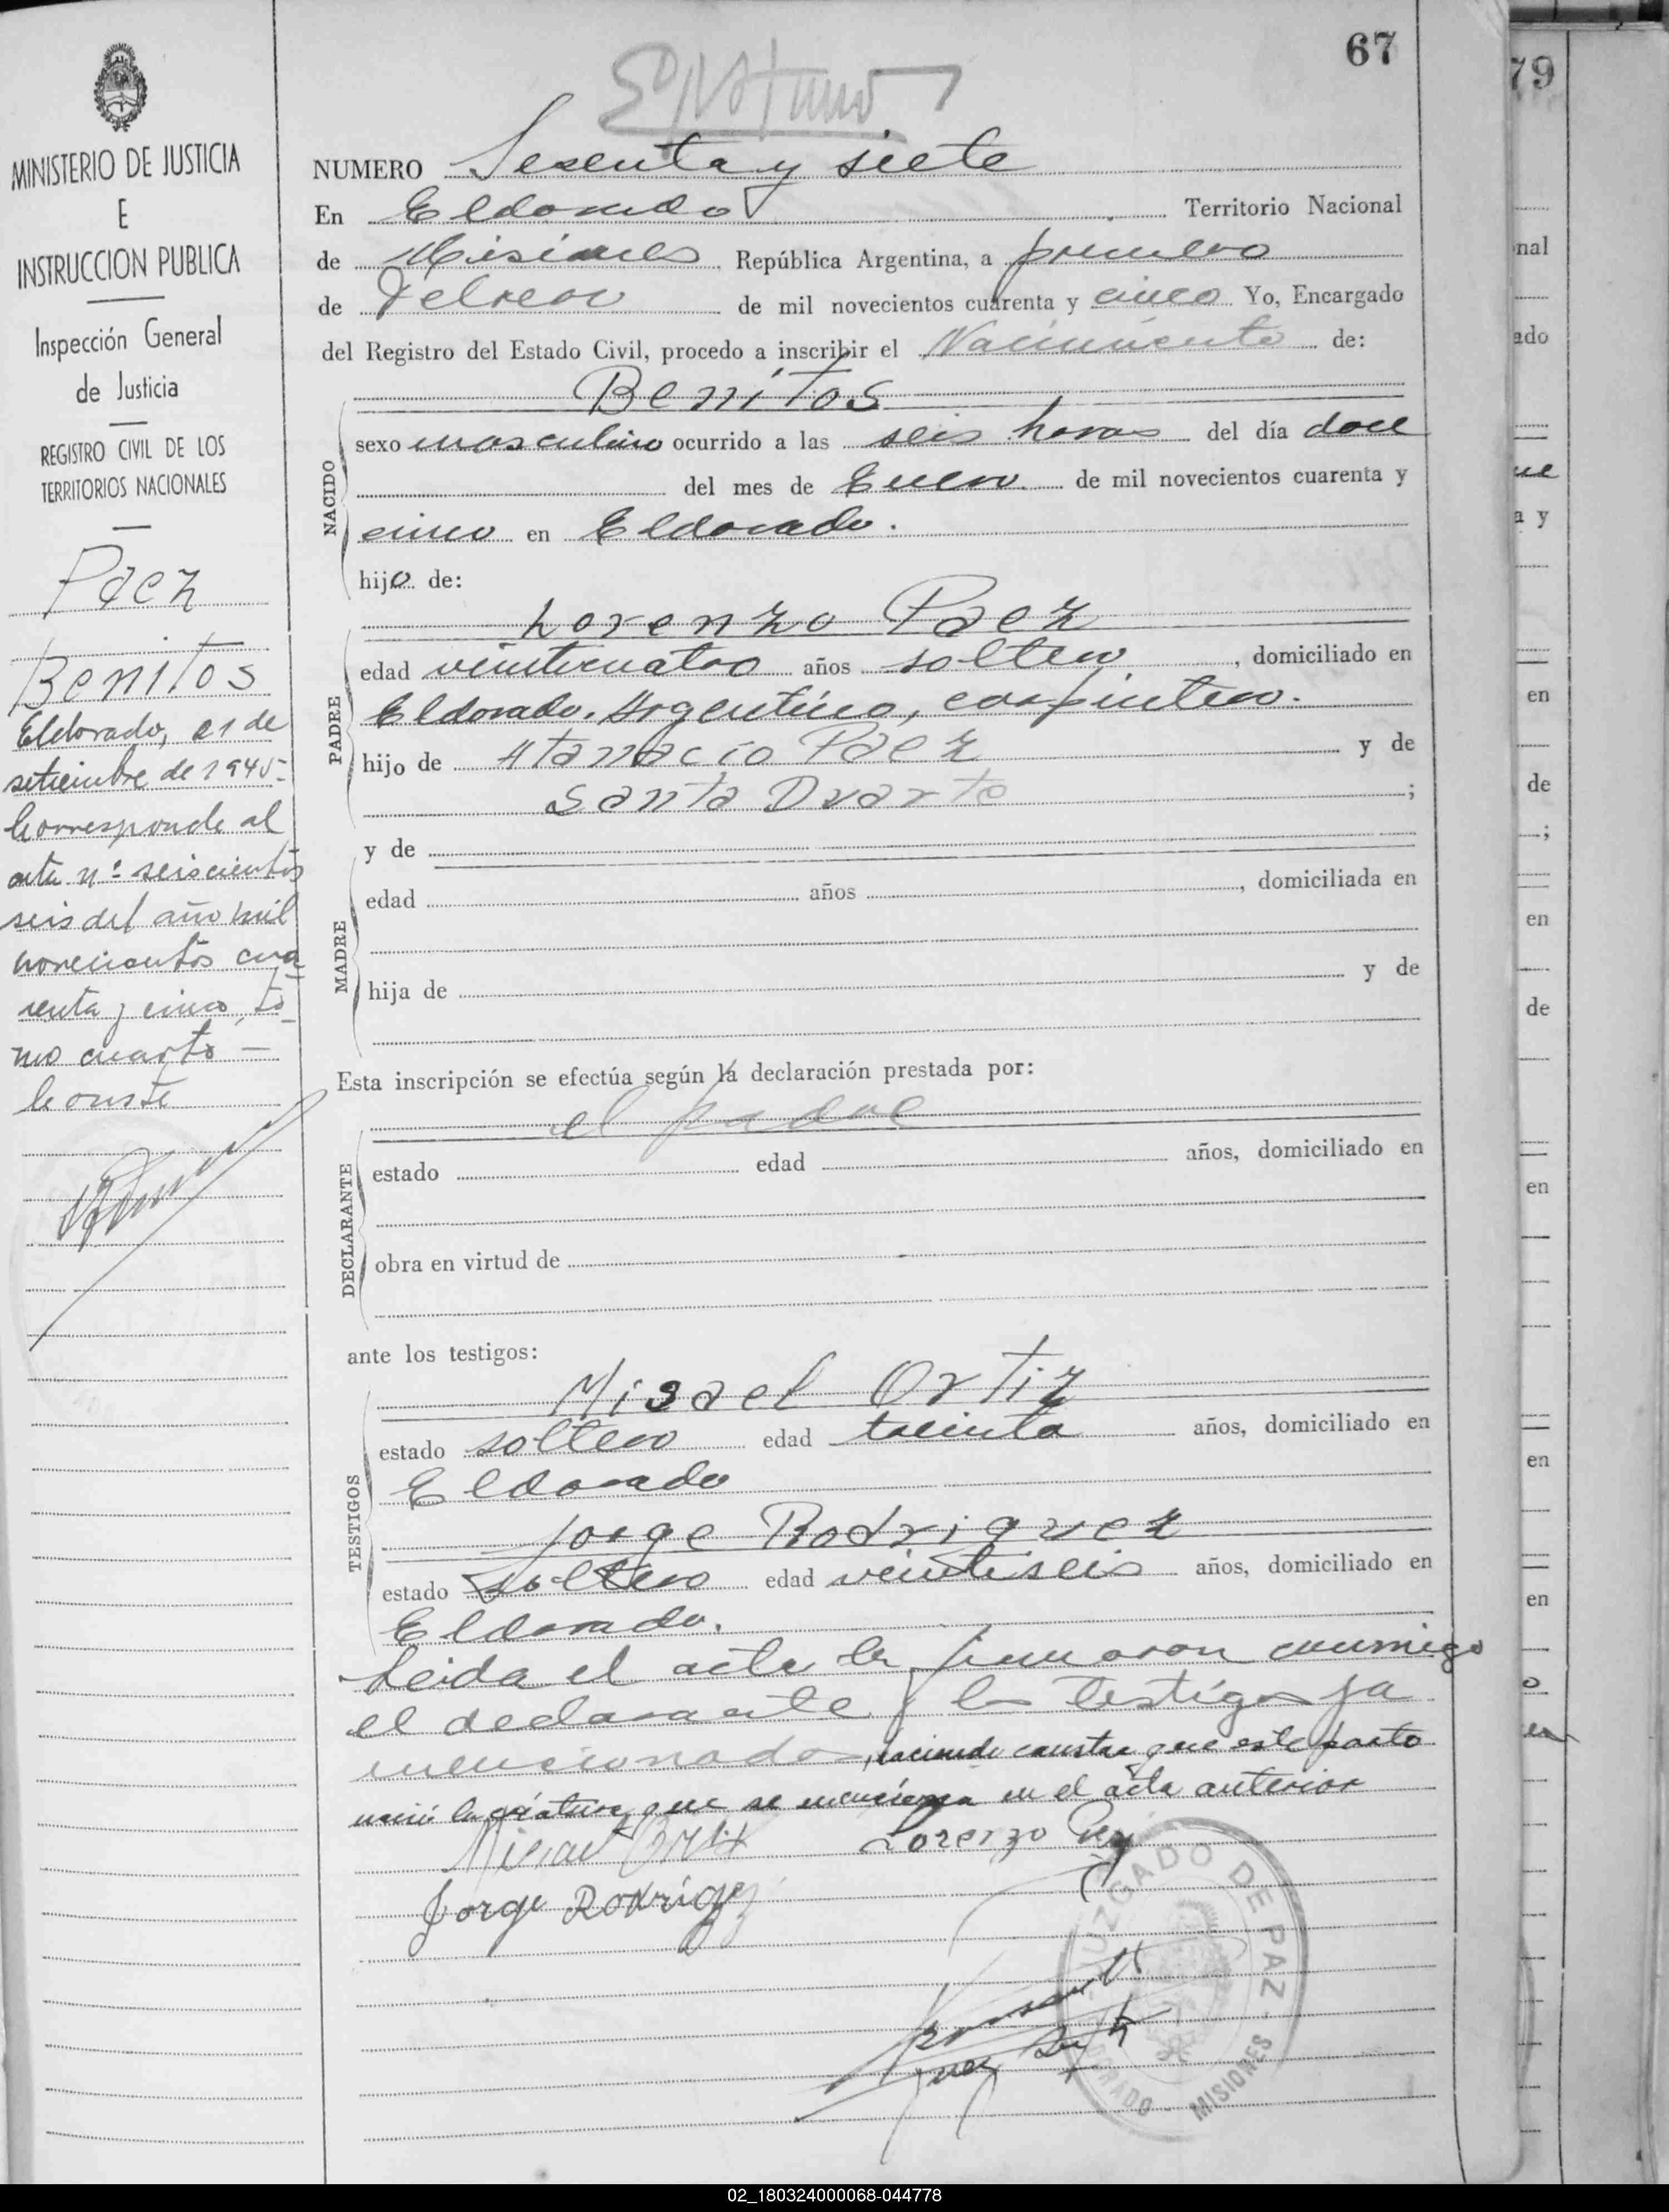 67
79
MINISTERIO DE JUSTICIA
E
INSTRUCCION PUBLICA
Inspección General
de Justicia
REGISTRO CIVIL DE LOS
TERRITORIOS NACIONALES
Paez
Benitos
Eldorado, 21 de
setiembre de 1945-
Corresponde al
acta nº seiscientos
seis del año mil
novecientos cua
renta y cinco, to
mo cuarto —
Conste
NUMERO Sesenta y siete
En Eldorado Territorio Nacional
de Misiones República Argentina, a primero
de Febrero de mil novecientos cuarenta y cinco Yo, Encargado
del Registro del Estado Civil, procedo a inscribir el Nacimiento de:
Benitos
NACIDO
sexo masculino ocurrido a las seis horas del día doce
del mes de Enero de mil novecientos cuarenta y
cinco en Eldorado.
hijo de:
Lorenzo Paez
PADRE
edad veinticuatro años soltero, domiciliado en
Eldorado, Argentino, carpintero.
hijo de Atanacio Paez y de
Santa Duarte;
MADRE
y de
edad años, domiciliada en
hija de y de
Esta inscripción se efectúa según la declaración prestada por:
el padre
DECLARANTE
estado edad años, domiciliado en
obra en virtud de
ante los testigos:
Misael Ortiz
TESTIGOS
estado soltero edad treinta años, domiciliado en
Eldorado
Jorge Rodriguez
estado soltero edad veintiseis años, domiciliado en
Eldorado.
Leida el acta la firmaron conmigo
el declarante y los testigos ya
mencionados, haciendo constar que este parto
nació la criatura que se menciona en el acta anterior
Misael Ortiz Lorenzo Paez
Jorge Rodríguez
JUZGADO DE PAZ
ELDORADO - MISIONES
nal
ado
ue
a y
en
de
;
en
de
en
en
en
02_180324000068-044778